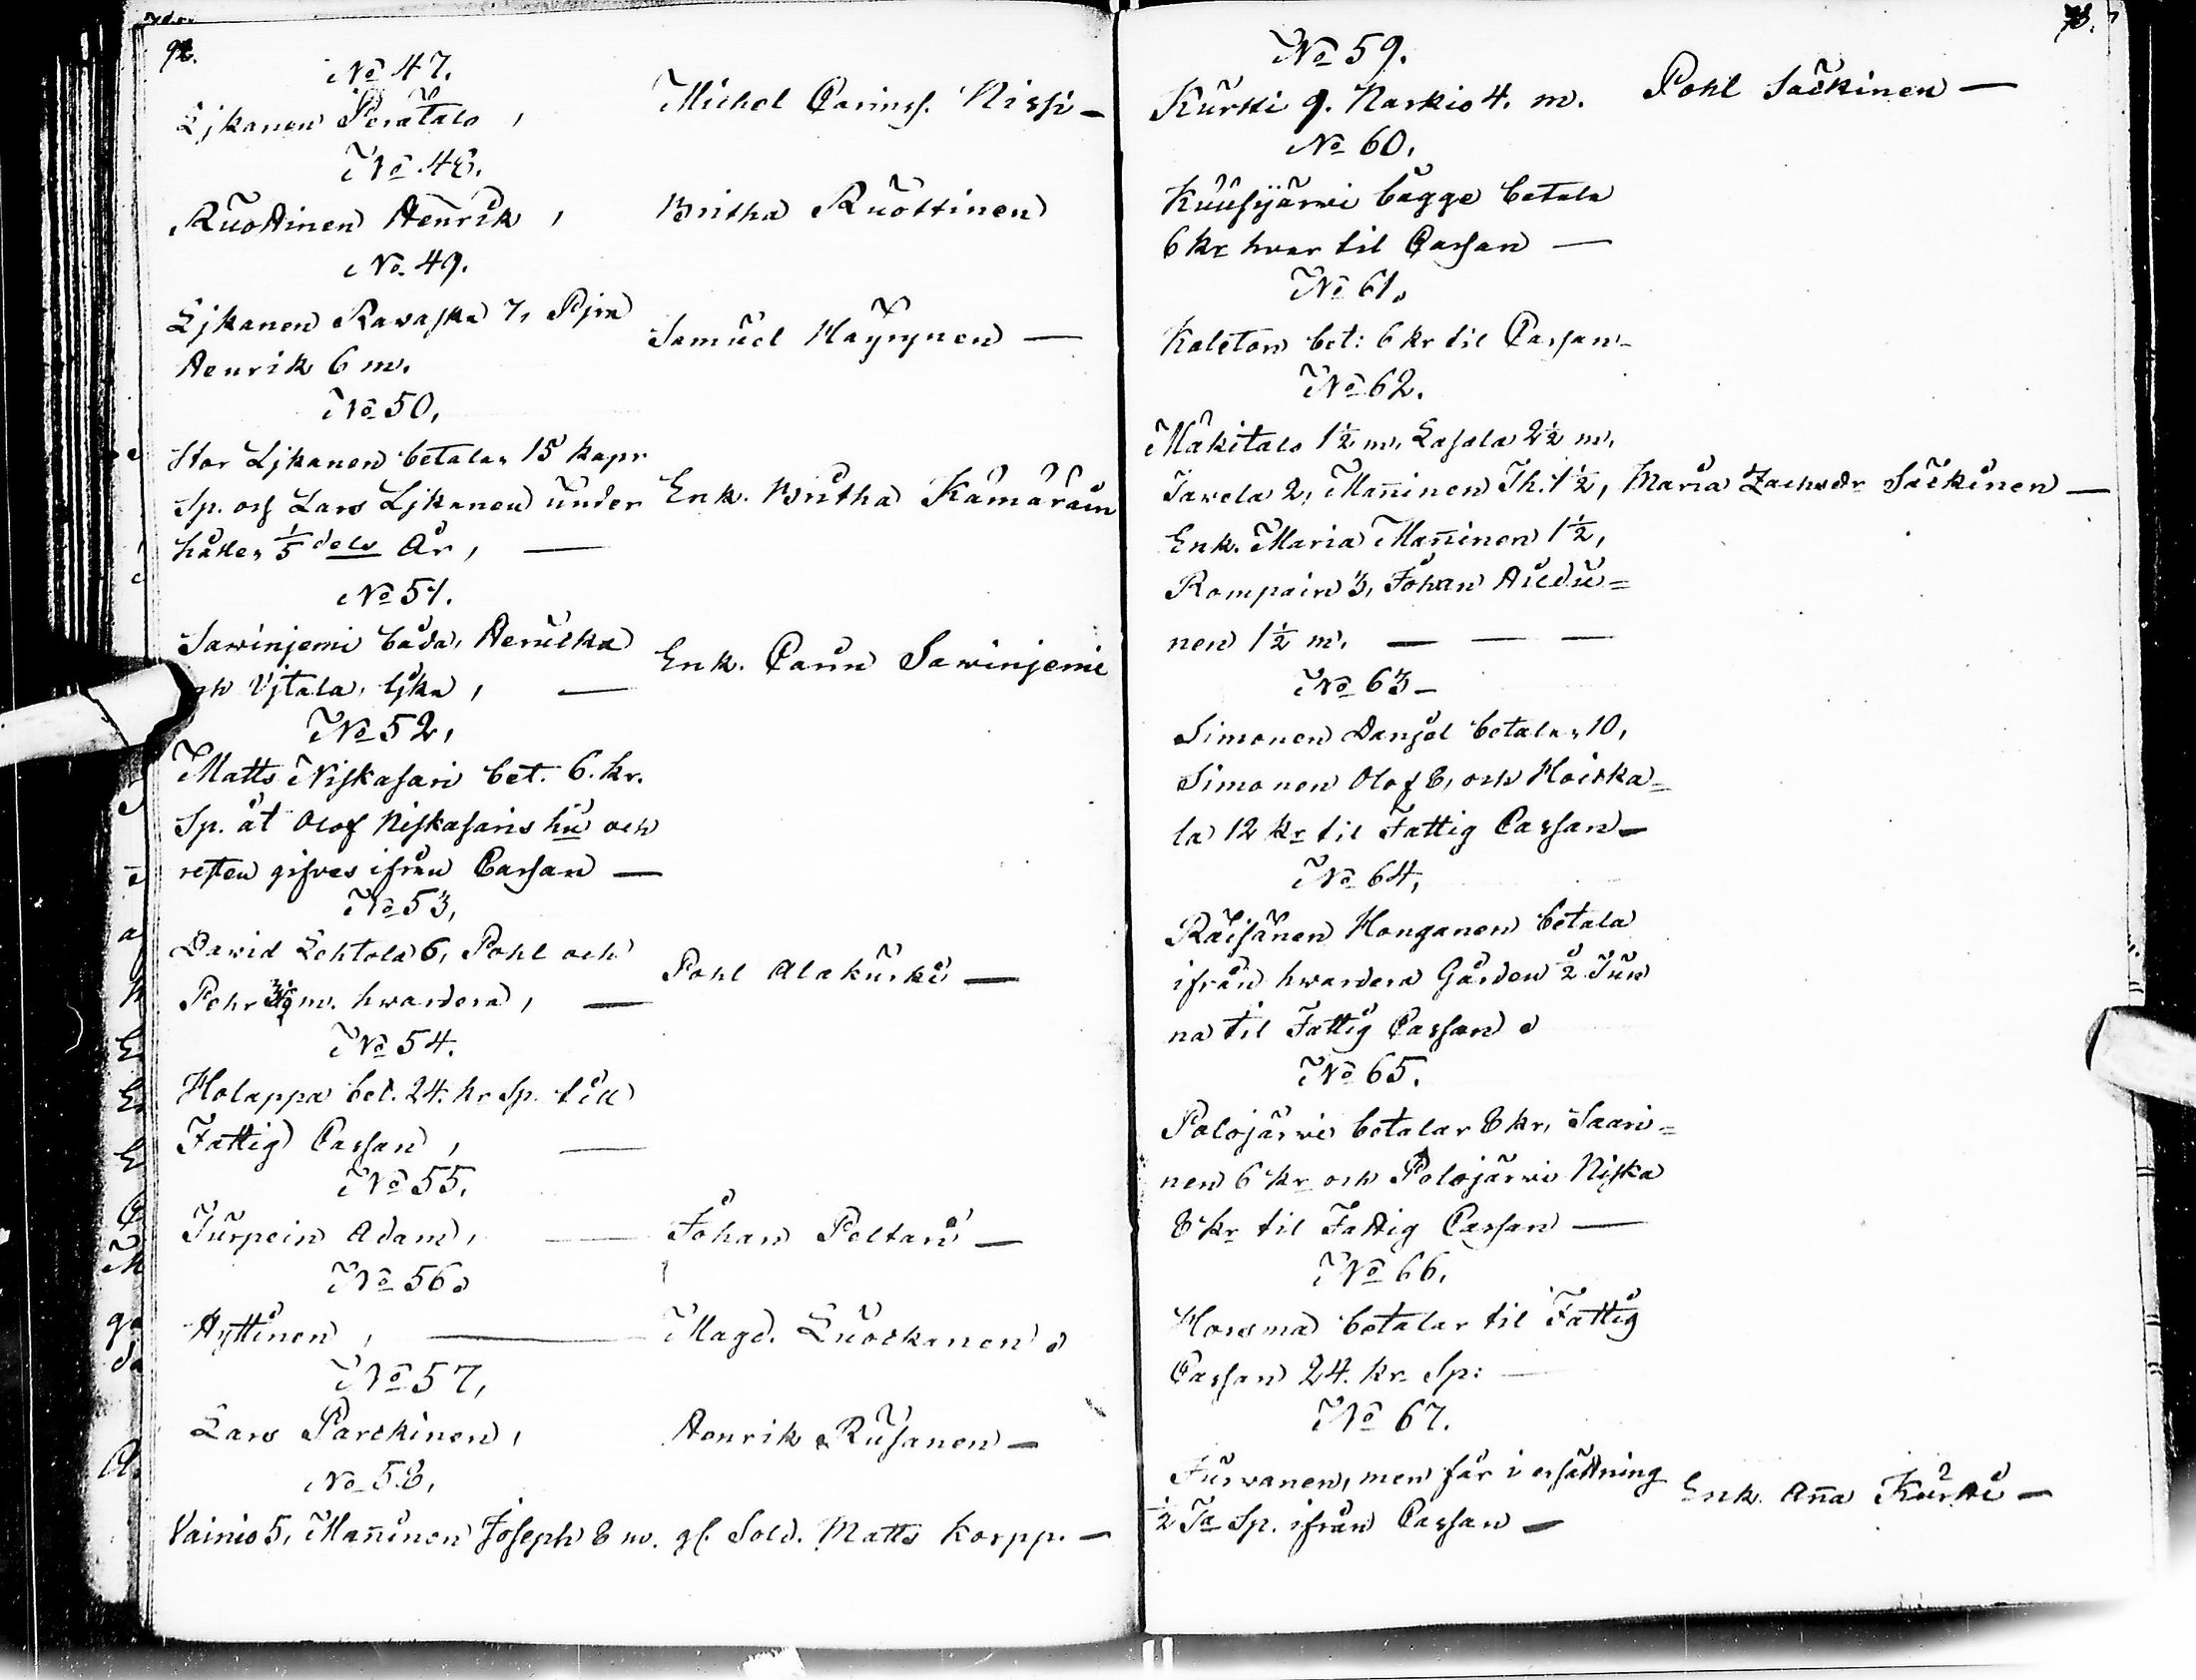 92.
No 47.
Ljkanen Perätalo, Michel Carinss. Nissi –
No 48.
Ruottinen Henrik, Britha Ruottinen
No 49.
Ljkanen Ravaska 7, Pjra Samuel Häyrynen —
Henrik 6 m.
No 50,
Stor Ljkanen betalar 15 kapr
Sp. och Lars Ljkanen under Enk. Britha Kämäräin
håller 1/5 dels År, —
No 51.
Sawinjemi båda, Heruska Enk. Carin Sawinjemi
och Vjtala, ljka, —
No 52,
Matts Niskasari bet. 6. kr.
Sp. åt Olof Niskasaris hu och
resten gifves ifrån Cassan —
No 53,
David Lehtola 6, Pohl och Pohl Alakurki —
Pehr m. hwardera, —
No 54.
Holappa bet. 24. kr Sp. till
Fattig Cassan, —
No 55,
Turpein Adam, — Johan Peltari —
No 56.
Hyttinen, — Magd. Luockanen
No 57,
Lars Parckinen, Henrik Rusanen —
No 58,
Vainio 5, Man̄inen Joseph 8 m. gl. Sold. Matts Korpp. —
93.
No 59.
Kurki 9. Narkio 4. m. Pohl Säckinen —
No 60,
Kuusijärwi bägge betala
6 kr hvar til Cassan —
No 61.
Kaleton bet: 6 kr til Cassan –
No 62.
Mäkitalo 1½ m, Lasala 2½ m,
Javela 2, Man̄inen Th. 1½, Maria Zachsdr Säckinen —
Enk. Maria Man̄inen 1½,
Rompain 3, Johan Audu=
nen 1½ m. — — —
No 63 –
Simonen Danjel betalar 10,
Simonen Olof 8, och Hoiska=
la 12 kr til Fattig Cassan –
No 64,
Räisänen Honganen betala
ifrån hwardera Gården ½ Tun
na til Fattig Cassan
No 65.
Polojärvi betalar 8 kr, Saari=
nen 6 kr och Polojärvi Niska
8 kr til Fattig Cassan —
No 66.
Horsma betalar til Fattig
Cassan 24. kr Sp: —
No 67.
Turvanen, men får i ersättning Enk. An̄a Kurki —
½ Ta Sp. ifrån Cassan —